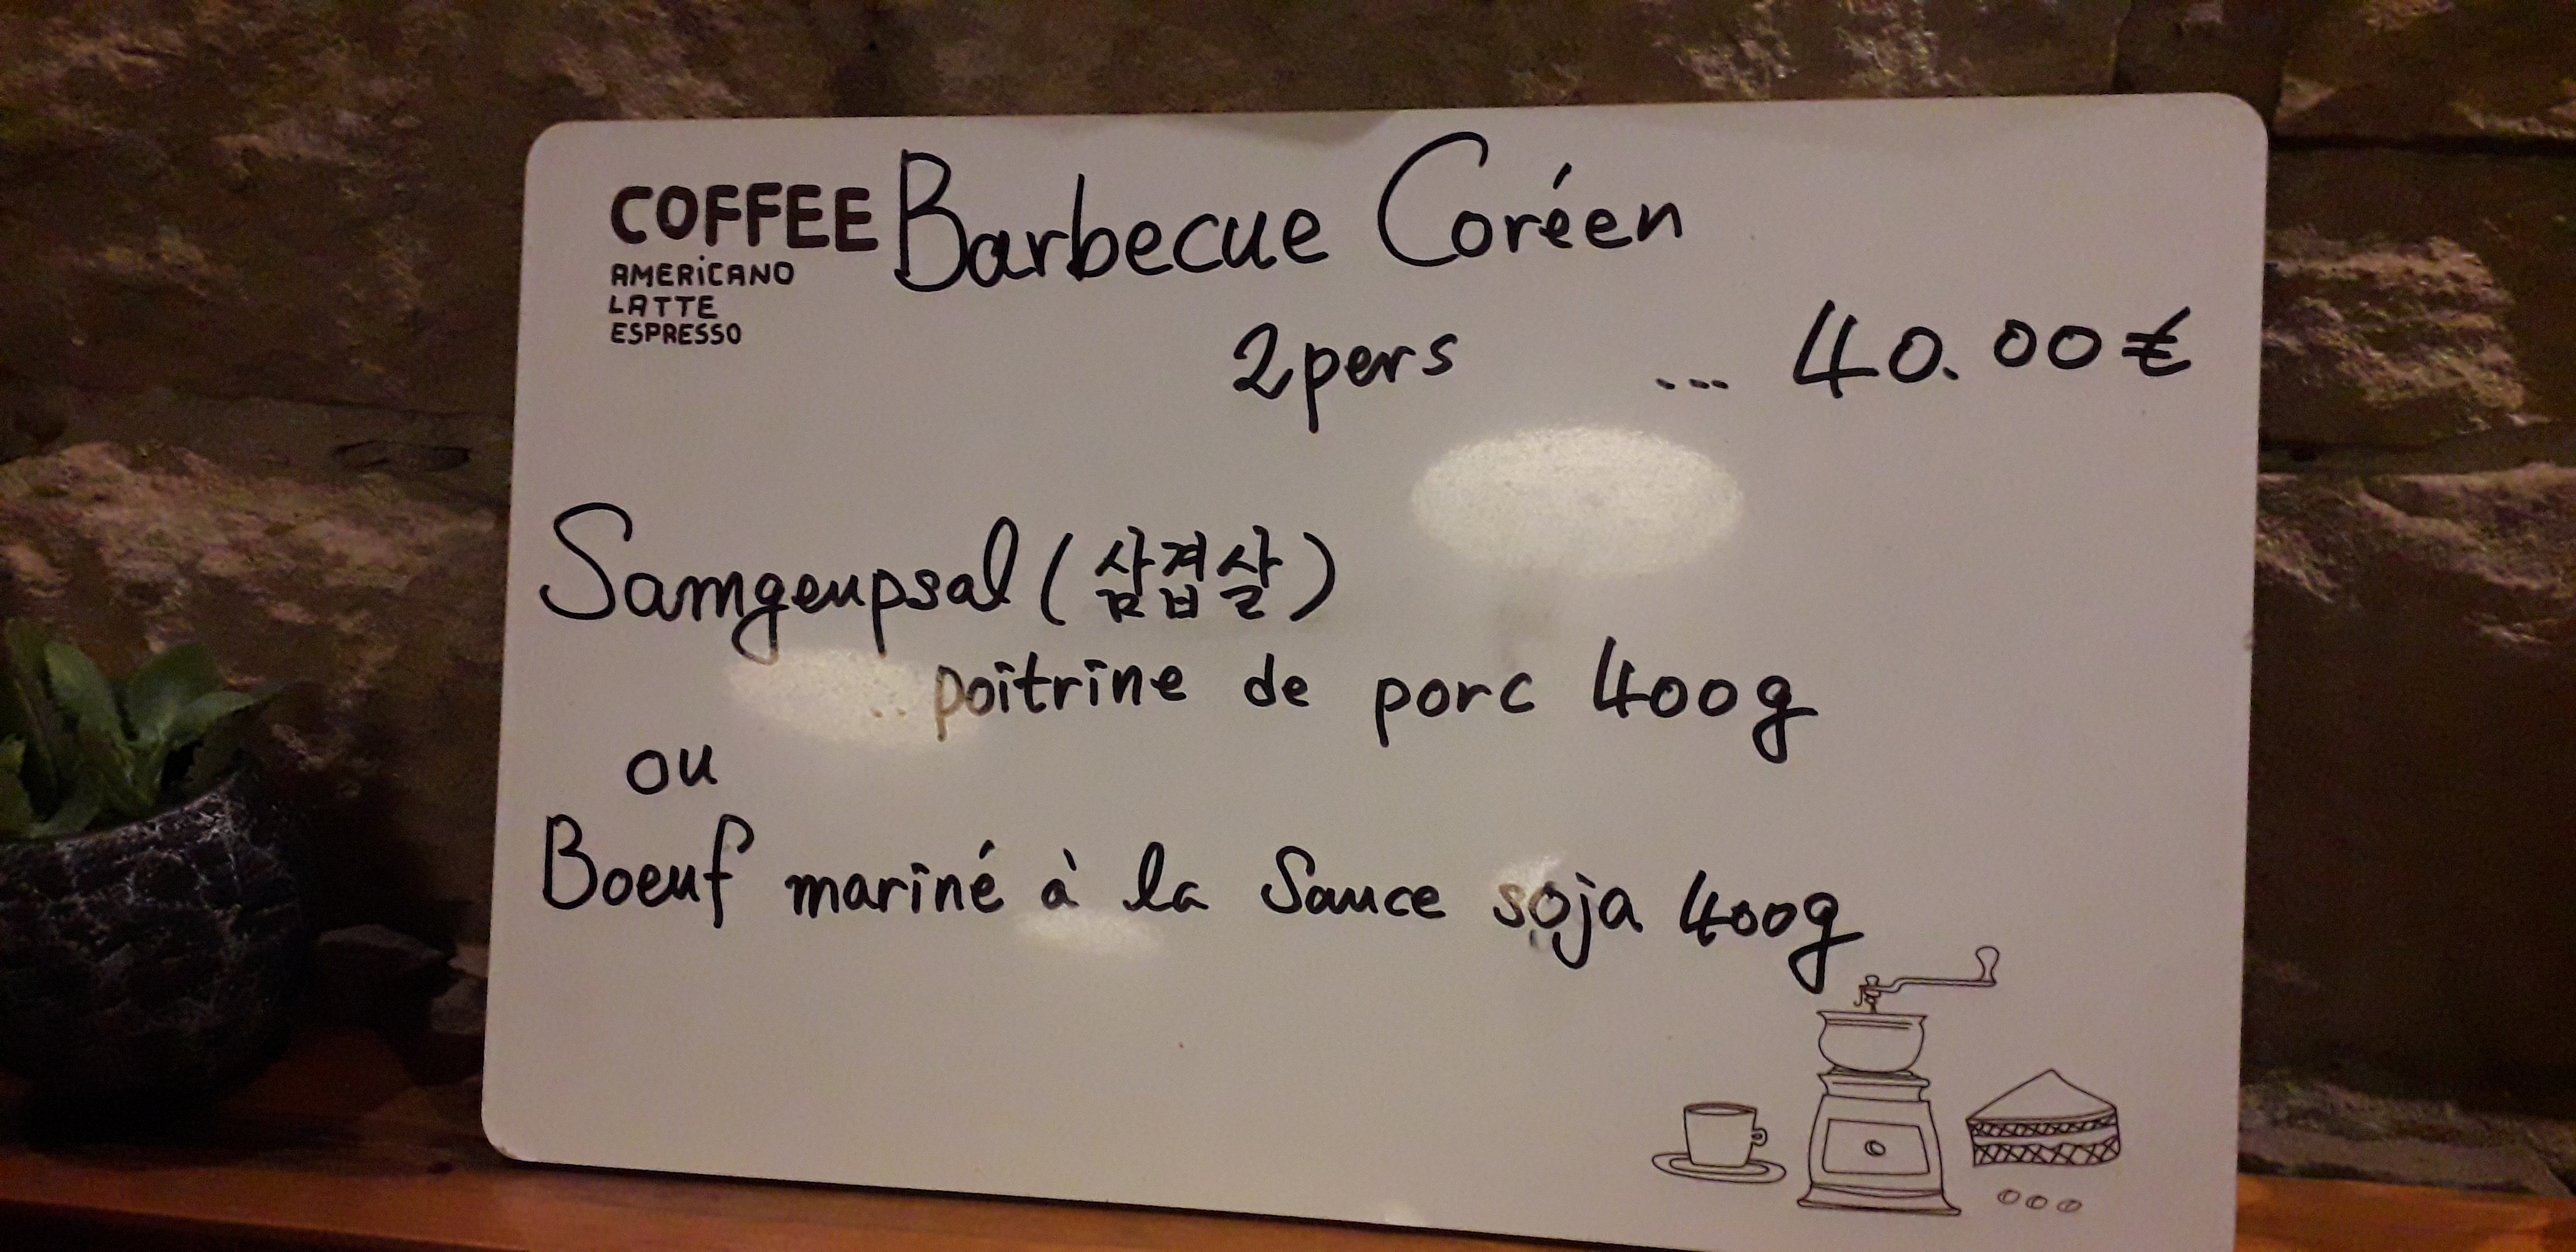 COFFEE
AMERICANO
LATTE
ESPRESSO
Barbecue Coréen
2pers ... 40.00€
Samgeupsal (삼겹살)
.. poitrine de porc 400g
ou
Boeuf mariné à la Sauce soja 400g